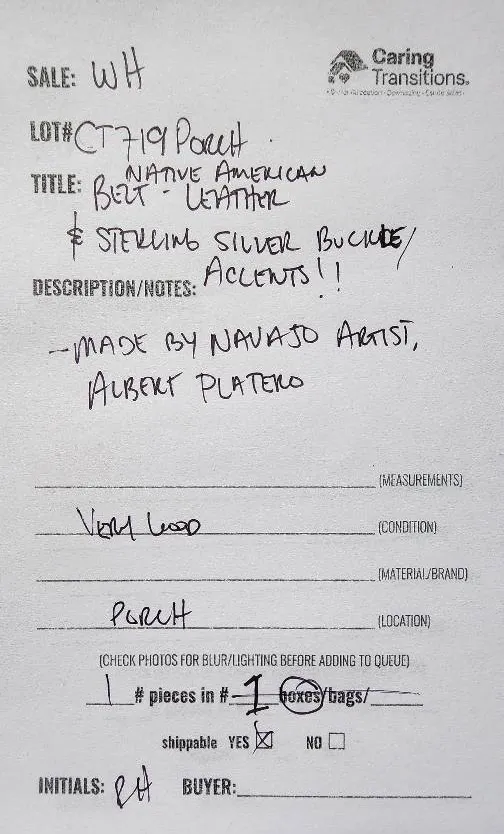 Caring
Transitions®
SALE: WH
LOT# CT719 PORCH
TITLE: NATIVE AMERICAN
BELT - LEATHER
& STERLING SILVER BUCKLE/
ACCENTS!!
DESCRIPTION/NOTES:
- MADE BY NAVAJO ARTIST,
ALBERT PLATERO
(MEASUREMENTS)
VERY GOOD (CONDITION)
(MATERIAL/BRAND)
PORCH (LOCATION)
(CHECK PHOTOS FOR BLUR/LIGHTING BEFORE ADDING TO QUEUE)
1 # pieces in # 1 boxes/bags/
shippable YES ☒ NO ☐
INITIALS: RH BUYER: